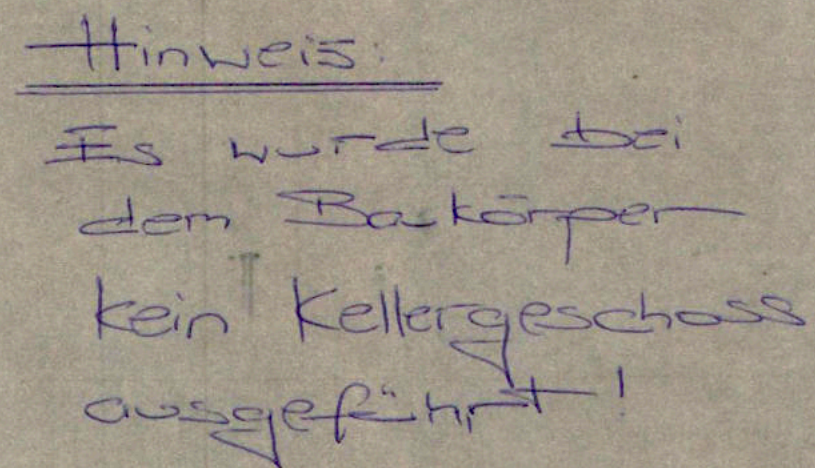 Hinweis:
Es wurde bei
dem Baukörper
kein Kellergeschoss
ausgeführt!